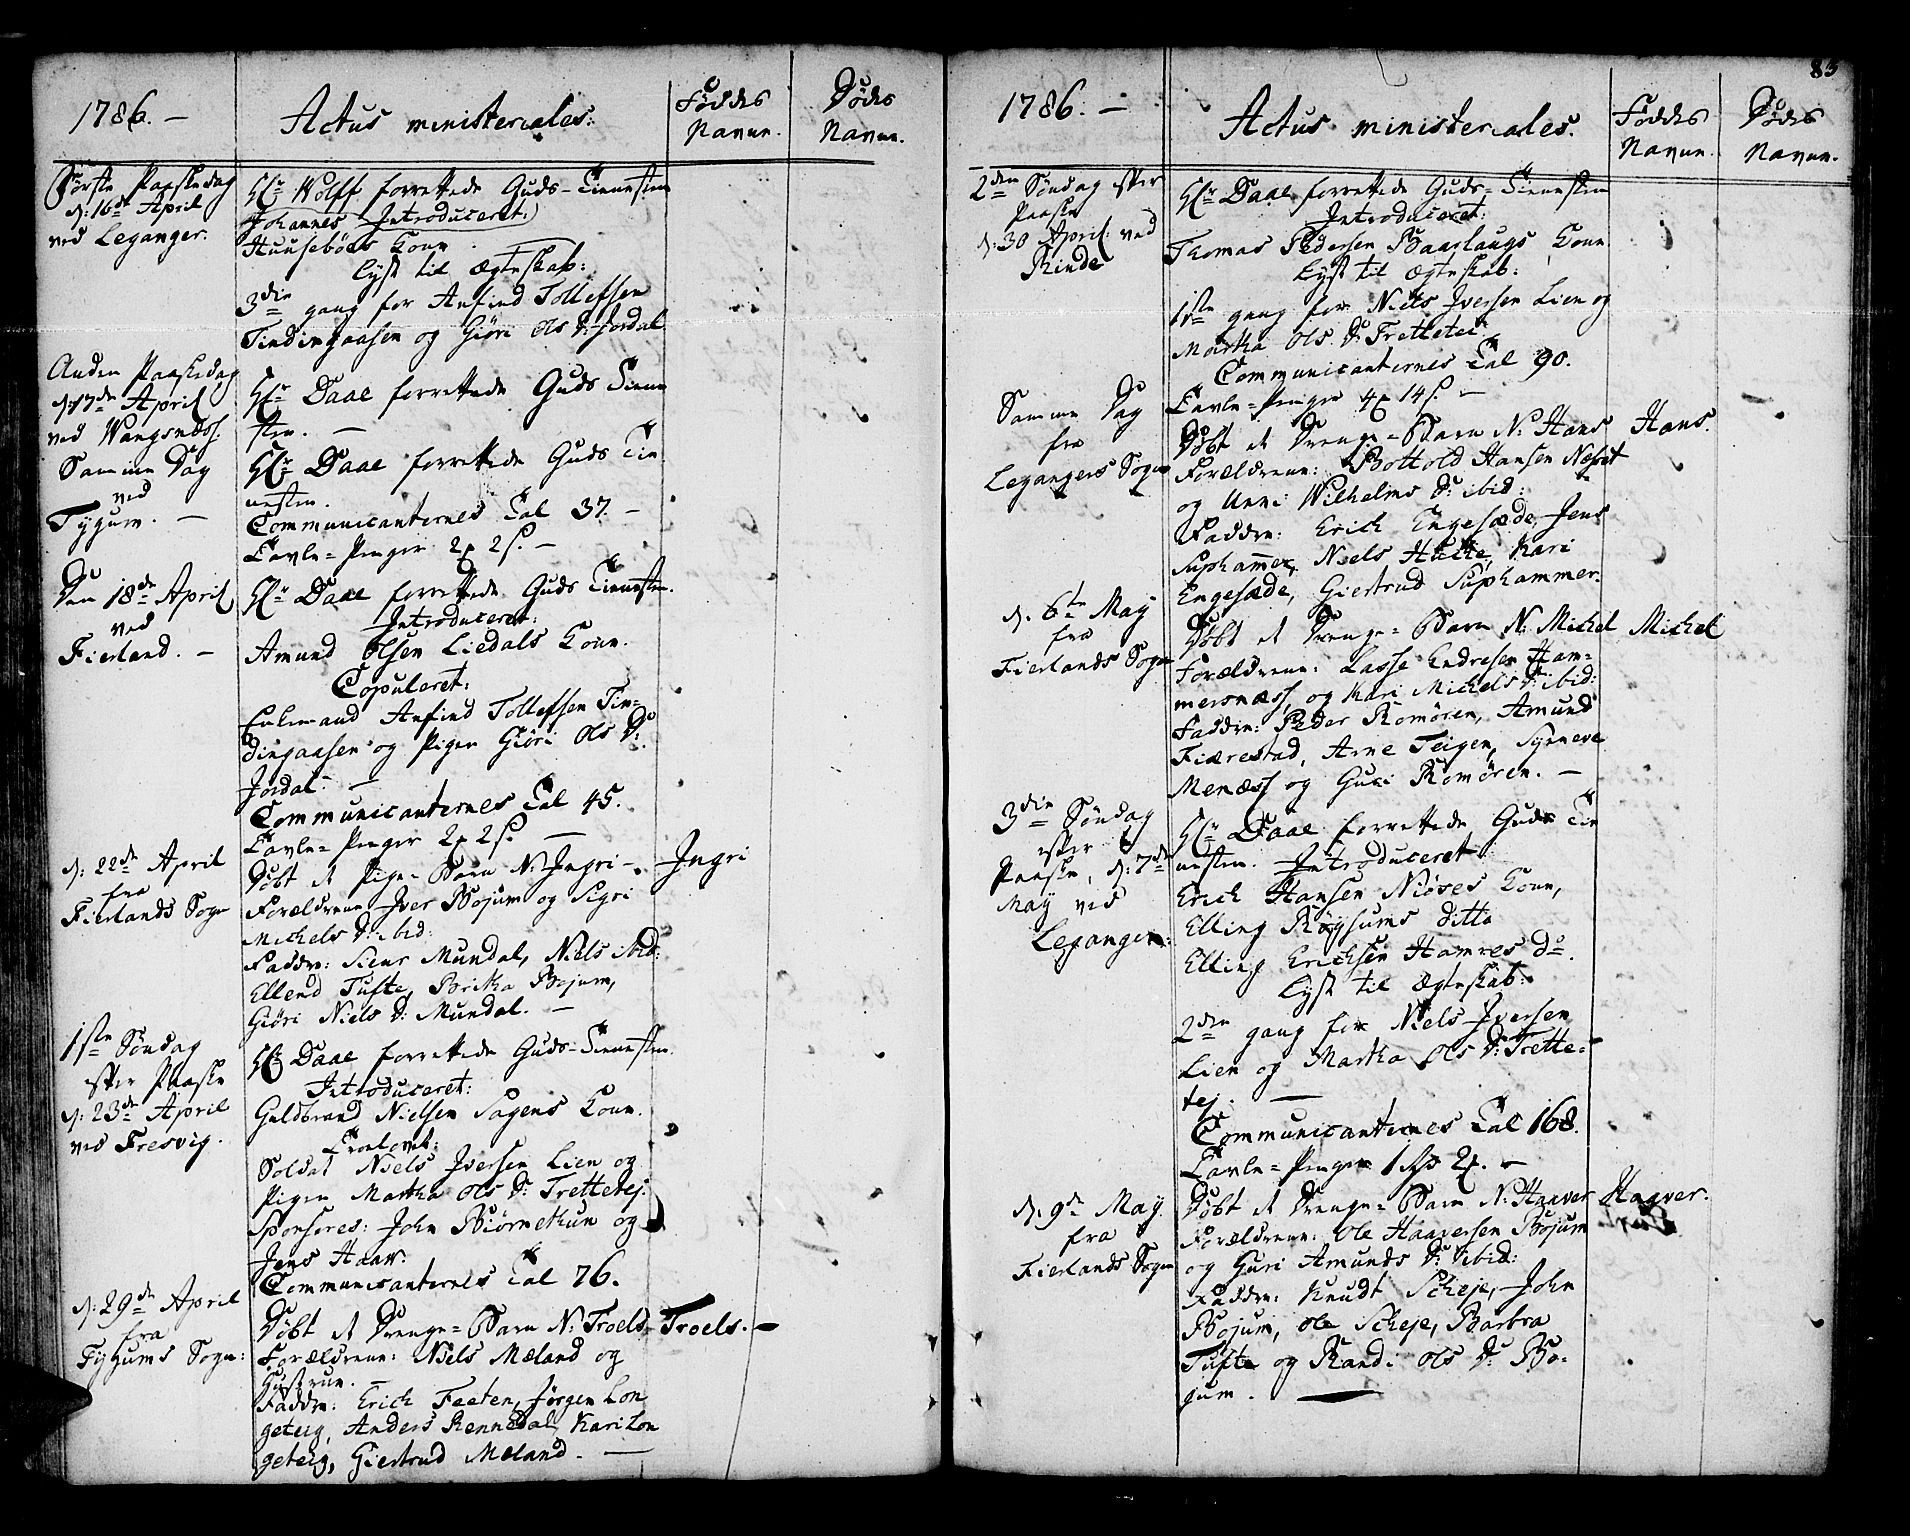 1786. —
Actus ministeriales:
Föddes
Navne.
Dödes
Navne.
Förste Paaskedag
d: 16de April
ved Leganger.
Hr Wolff forrettede Guds-Tienesten
Johannes Introduceret:
Huuseböes Kone
Lyst til Ægteskab:
3die gang for Anfind Tollefsen
Tindingaasen og Giöri Ols D: Jordal
Anden Paaskedag
d: 17de April
ved Wangsness.
Hr Daae forrettede Guds Tiene
sten. —
Samme Dag
ved
Tygum. —
Hr Daae forrettede Guds Tie
nesten.
Communicanternes Tal 37. —
Tavle-Penger 2 2 s. —
Den 18de April
ved
Fierland. —
Hr Daae forrettede Guds Tienesten.
Introduceret:
Amund Olsen Liedals Kone.
Copuleret:
Anfind Tollefsen Tin-
dingaasen og Pigen Giöri Ols D:
Jordal. —
Communicanternes Tal 45.
Tavle-Penger 2 2 s. —
d: 22de April
fra
Fierlands Sogn
Döbt et Pige-Barn N: Ingri —. Ingri
Forældrene Iver Bojum og Sigri
Michels D: ibid:
Faddre: Siur Mundal, Niels ibid:
Ellend Tufte, Britha Bojum,
Giöri Niels D: Mundal. —
1ste Söndag
efter Paaske
d: 23de April
ved Fresvig.
Hr Daae forrettede Guds-Tienesten.
Introduceret:
Guldbrand Nielsen Sagens Kone.
Trolovet:
Soldat Niels Iversen Lien og
Pigen Martha Ols D: Trettetej.
Sponsores: John Biörnethun og
Jens Haav.
Communicanternes Tal 76.
d: 29de April
fra
Tygums Sogn:
Döbt et Drenge-Barn N: Troels Troels. —
Forældrene: Niels Mæland og
Hustrue. —
Faddre: Erich Feeten, Jörgen Lon
geteig, Anders Rennedal, Kari Lon
geteig, Giertrud Mæland. —
83
1786. —
Actus ministeriales.
Föddes
Navne.
Dödes
Navne.
2den Söndag efter
Paaske
d: 30 April ved
Rinde
Hr Daae forrettede Guds-Tienesten
Introduceret:
Thomas Pedersen Baarlaugs Kone
Lyst til Ægteskab:
1ste gang for Niels Iversen Lien og
Martha Ols D: Trettetei
Communicanternes Tal 90.
Tavle-Penger 4 14 s. —
Samme Dag
fra
Legangers Sogn
Döbt et Drenge-Barn N: Hans Hans.
Forældrene: Bottold Hansen Nesset
og Unni Wilhelms D: ibid:
Faddre: Erich Engesæde, Jens
Suphammer, Niels Hutte, Kari
Engesæde, Giertrud Suphammer.
d. 6te May
fra
Fierlands Sogn
Döbt et Drenge-Barn N: Michel Michel
Forældrene: Lasse Endresen Ham-
mersnæss, og Kari Michels D: ibid:
Faddre: Peder Romören, Amund
Fiærestad, Arne Teigen, Synneve
Menæss og Guri Romören. —
3die Söndag
efter
Paaske, d: 7de
May ved
Leganger:
Hr Daae forrettede Guds Tie
nesten. Introduceret
Erich Hansen Niöses Kone,
Elling Röysums ditto
Elling Erichsen Hamres do.
Lyst til Ægteskab:
2den gang for Niels Iversen
Lien og Martha Ols D: Trette-
tej. —
Communicanternes Tal 168.
Tavle-Penger 1 Rd 2. —
d. 9de May.
fra
Fierlands Sogn
Döbt et Drenge-Barn N: Haaver Haaver.
Forældrene: Ole Haaversen Bojum
og Guri Amunds D: ibid:
Faddre: Knudt Scheje, John
Bojum, Ole Scheje, Barbra
Tufte og Randi Ols D: Bo-
jum. —